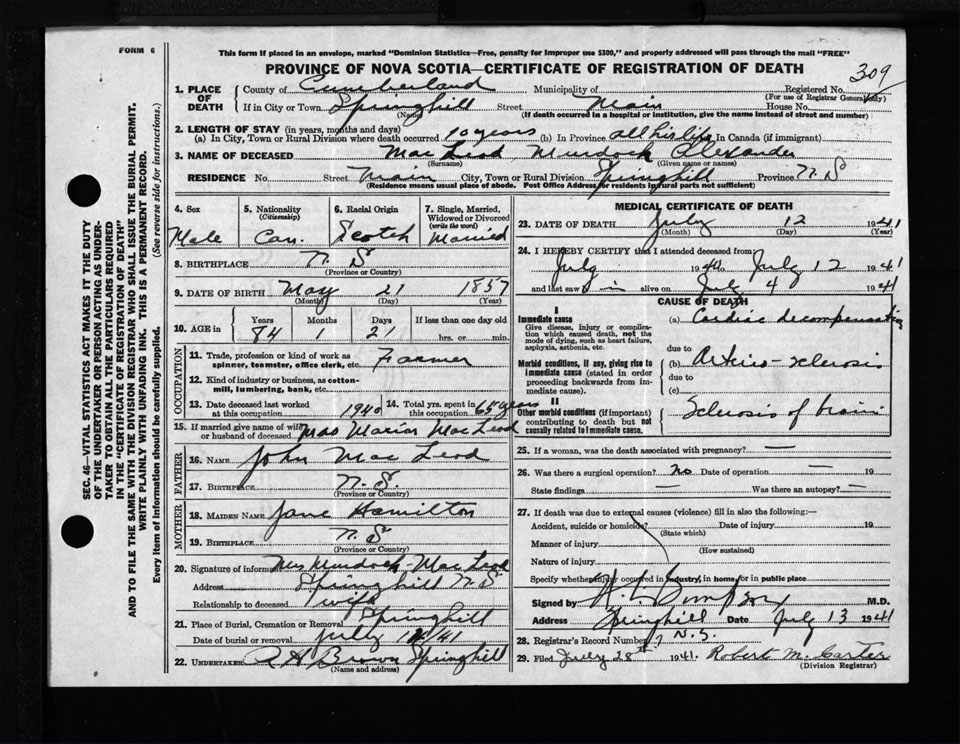 FORM 6
This form if placed in an envelope, marked "Dominion Statistics—Free, penalty for improper use $300," and properly addressed will pass through the mail "FREE"
PROVINCE OF NOVA SCOTIA—CERTIFICATE OF REGISTRATION OF DEATH
309
1. PLACE OF DEATH
County of Cumberland Municipality of Registered No.
(For use of Registrar General only)
If in City or Town Springhill Street Main House No.
(Name) (If death occurred in a hospital or institution, give the name instead of street and number)
2. LENGTH OF STAY (in years, months and days)
(a) In City, Town or Rural Division where death occurred 70 years (b) In Province all his life In Canada (if immigrant)
3. NAME OF DECEASED MacLeod, Murdock Alexander
(Surname) (Given name or names)
RESIDENCE No. Street Main City, Town or Rural Division Springhill Province N S
(Residence means usual place of abode. Post Office Address for residents in rural parts not sufficient)
4. Sex Male
5. Nationality (Citizenship) Can.
6. Racial Origin Scotch
7. Single, Married, Widowed or Divorced (write the word) Married
8. BIRTHPLACE N. S
(Province or Country)
9. DATE OF BIRTH May 21 1857
(Month) (Day) (Year)
10. AGE in Years Months Days If less than one day old
84 1 21 hrs. or min.
OCCUPATION
11. Trade, profession or kind of work as spinner, teamster, office clerk, etc. Farmer
12. Kind of industry or business, as cotton-mill, lumbering, bank, etc.
13. Date deceased last worked at this occupation 1940
14. Total yrs. spent in this occupation 65 years
15. If married give name of wife or husband of deceased Mrs Marion MacLeod
FATHER
16. NAME John MacLeod
17. BIRTHPLACE N. S.
(Province or Country)
MOTHER
18. MAIDEN NAME Jane Hamilton
19. BIRTHPLACE N. S
(Province or Country)
20. Signature of informant Mrs Murdock MacLeod
Address Springhill N S
Relationship to deceased wife
21. Place of Burial, Cremation or Removal Springhill
Date of burial or removal July /41
22. UNDERTAKER A H Brown Springhill
(Name and address)
MEDICAL CERTIFICATE OF DEATH
23. DATE OF DEATH July 12 1941
(Month) (Day) (Year)
24. I HEREBY CERTIFY that I attended deceased from:
July 1940 to July 12 1941
and last saw alive on July 4 1941
CAUSE OF DEATH
I
Immediate cause
Give disease, injury or complication which caused death, not the mode of dying, such as heart failure, asphyxia, asthenia, etc.
(a) Cardiac decompensation
due to
Morbid conditions, if any, giving rise to immediate cause (stated in order proceeding backwards from immediate cause).
(b) Arterio-sclerosis
due to
(c)
II
Other morbid conditions (if important) contributing to death but not causally related to immediate cause.
Sclerosis of brain
25. If a woman, was the death associated with pregnancy? —
26. Was there a surgical operation? no Date of operation — 19
State findings — Was there an autopsy? —
27. If death was due to external causes (violence) fill in also the following:—
Accident, suicide or homicide? Date of injury 19
(State which)
Manner of injury
(How sustained)
Nature of injury
Specify whether injury occurred in industry, in home, or in public place
Signed by M.D.
Address Springhill Date July 13 1941
28. Registrar's Record Number N.S.
29. Filed July 28th 1941. Robert M. Carter
(Division Registrar)
SEC. 46—VITAL STATISTICS ACT MAKES IT THE DUTY
OF THE UNDERTAKER OR PERSON ACTING AS UNDERTAKER TO OBTAIN ALL THE PARTICULARS REQUIRED
IN THE "CERTIFICATE OF REGISTRATION OF DEATH"
AND TO FILE THE SAME WITH THE DIVISION REGISTRAR WHO SHALL ISSUE THE BURIAL PERMIT.
WRITE PLAINLY WITH UNFADING INK. THIS IS A PERMANENT RECORD.
Every item of information should be carefully supplied. (See reverse side for instructions.)